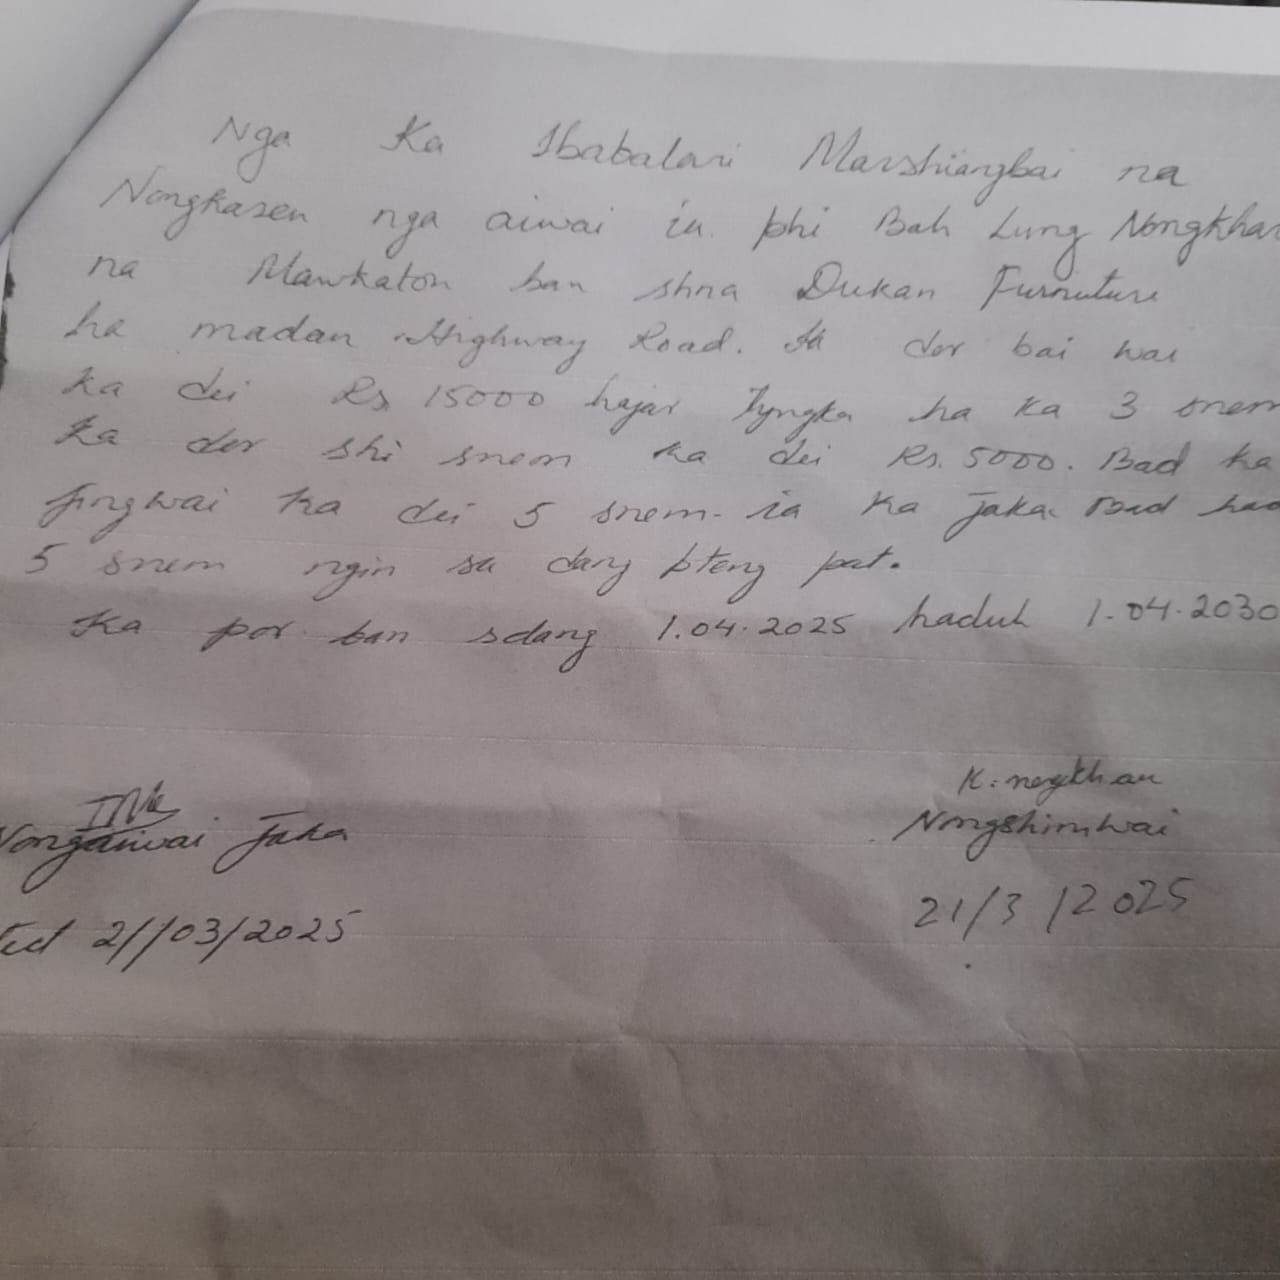 Nga Ka Ibabalari Marshiangbai na
Nongkasen nga aiwai ia phi Bah Lung Nongkhar
na Mawkaton ban shna Dukan Furniture
ha madan Highway Road. Ka dor bai wai
ka dei Rs 15000 hajar Tyngka ha ka 3 snem
Ka dor shi snem ka dei Rs. 5000. Bad ka
jingwai ka dei 5 snem ia ka jaka Bad had
5 snem ngin sa dang bteng pat.
Ka por ban sdang 1.04.2025 haduh 1.04.2030
Nongaiwai Jaka
21/03/2025
Nongshimwai
21/3/2025